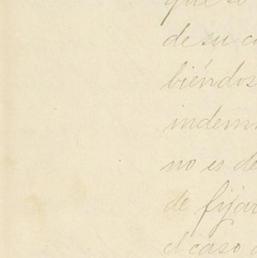 que se
de su c
biéndos
indem
no es de
de fijar
el caso